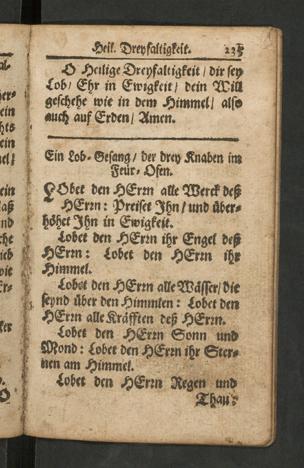 Heil. Dreyfaltigkeit. 235
O Heilige Dreyfaltigkeit / dir sey
Lob / Ehr in Ewigkeit / dein Will
geschehe wie in dem Himmel / also
auch auf Erden / Amen.
Ein Lob-Gesang / der drey Knaben im
Feur-Ofen.
LObet den HErrn alle Werck deß
HErrn: Preiset Ihn / und über-
höhet Ihn in Ewigkeit.
Lobet den HErrn ihr Engel deß
HErrn: Lobet den HErrn ihr
Himmel.
Lobet den HErrn alle Wässer / die
seynd über den Himmlen: Lobet den
HErrn alle Kräfften deß HErrn.
Lobet den HErrn Sonn und
Mond: Lobet den HErrn ihr Ster-
nen am Himmel.
Lobet den HErrn Regen und
Thau: